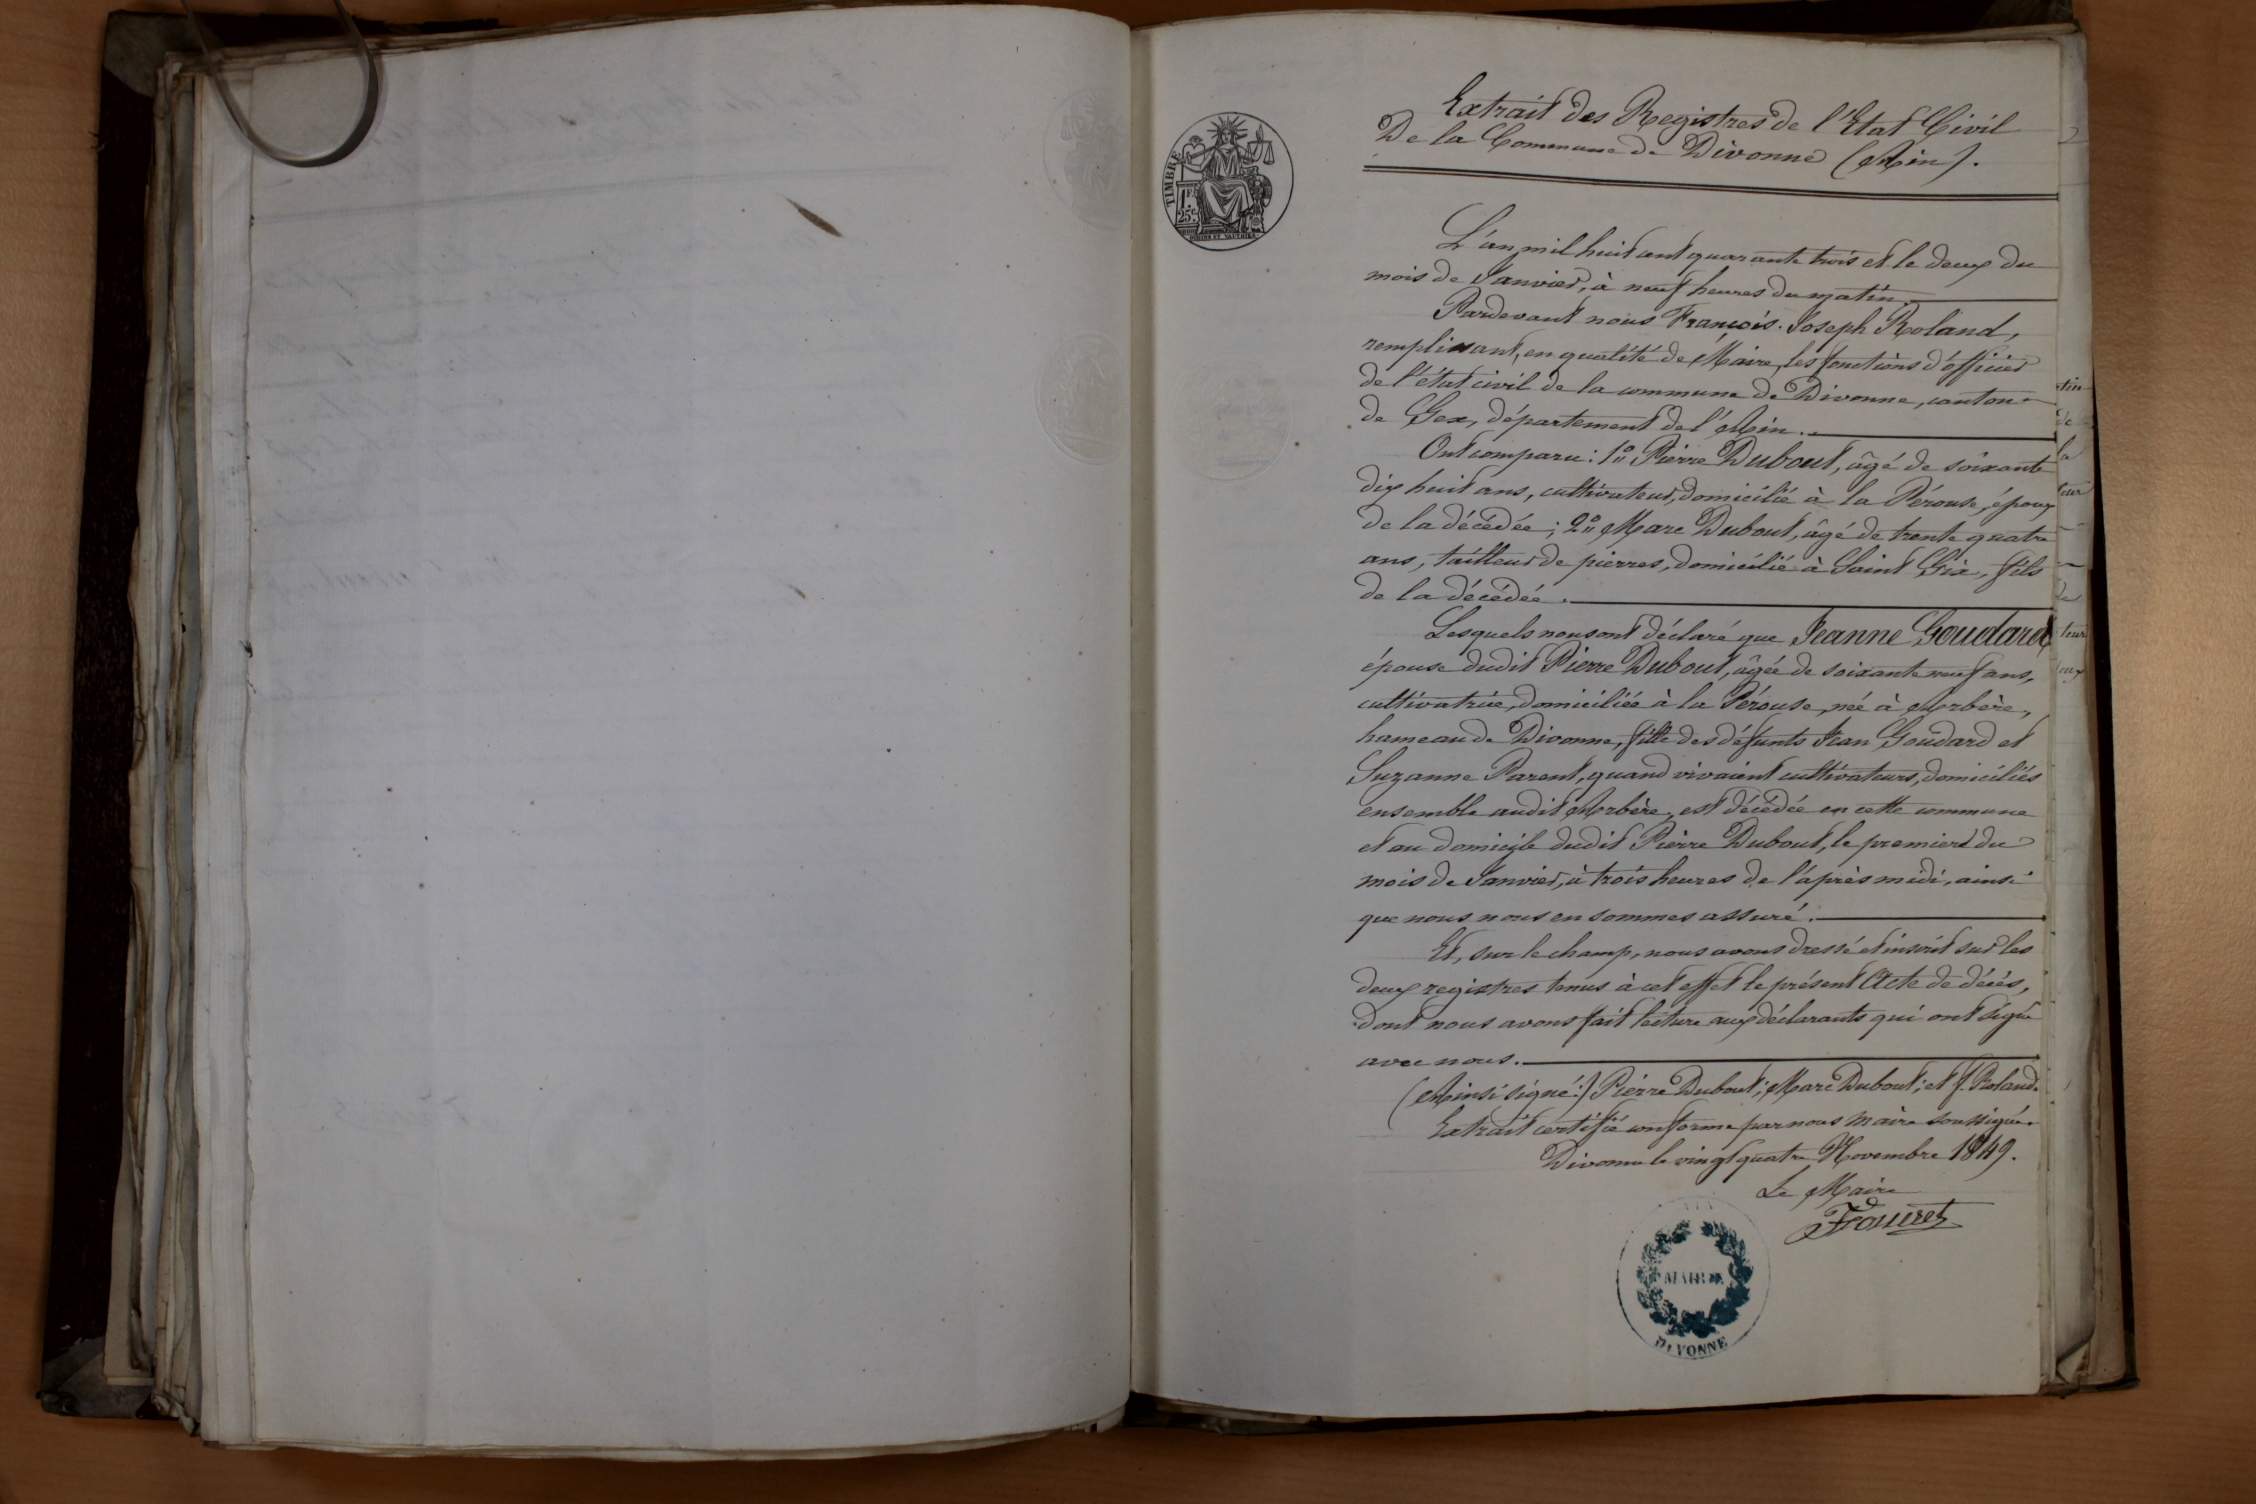 Extrait des Registres de l'Etat Civil
De la Commune de Divonne (Ain).
TIMBRE
1 F.
25 c.
L'an mil huit cent quarante trois et le deux du
mois de Janvier, à neuf heures du matin.
Pardevant nous François-Joseph Roland,
remplissant, en qualité de Maire, les fonctions d'officier
de l'état civil de la commune de Divonne, canton
de Gex, département de l'Ain.
Ont comparu: 1º Pierre Dubout, âgé de soixante
dix huit ans, cultivateur, domicilié à la Pérouse, époux
de la décédée; 2º Marc Dubout, âgé de trente quatre
ans, tailleur de pierres, domicilié à Saint Gix, fils
de la décédée.
Lesquels nous ont déclaré que Jeanne Goudard,
épouse dudit Pierre Dubout, âgée de soixante neuf ans,
cultivatrice, domiciliée à la Pérouse, née à Arbère,
hameau de Divonne, fille des défunts Jean Goudard et
Suzanne Parent, quand vivaient cultivateurs, domiciliés
ensemble audit Arbère, est décédée en cette commune
et au domicile dudit Pierre Dubout, le premier du
mois de Janvier, à trois heures de l'après midi, ainsi
que nous nous en sommes assuré.
Et, sur le champ, nous avons dressé et inscrit sur les
deux registres tenus à cet effet le présent Acte de décès,
dont nous avons fait lecture aux déclarants qui ont signé
avec nous.
(Ainsi signé:) Pierre Dubout; Marc Dubout; et f. Roland.
Extrait certifié conforme par nous maire soussigné.
Divonne le vingt quatre Novembre 1849.
Le Maire
MAIRIE
DIVONNE